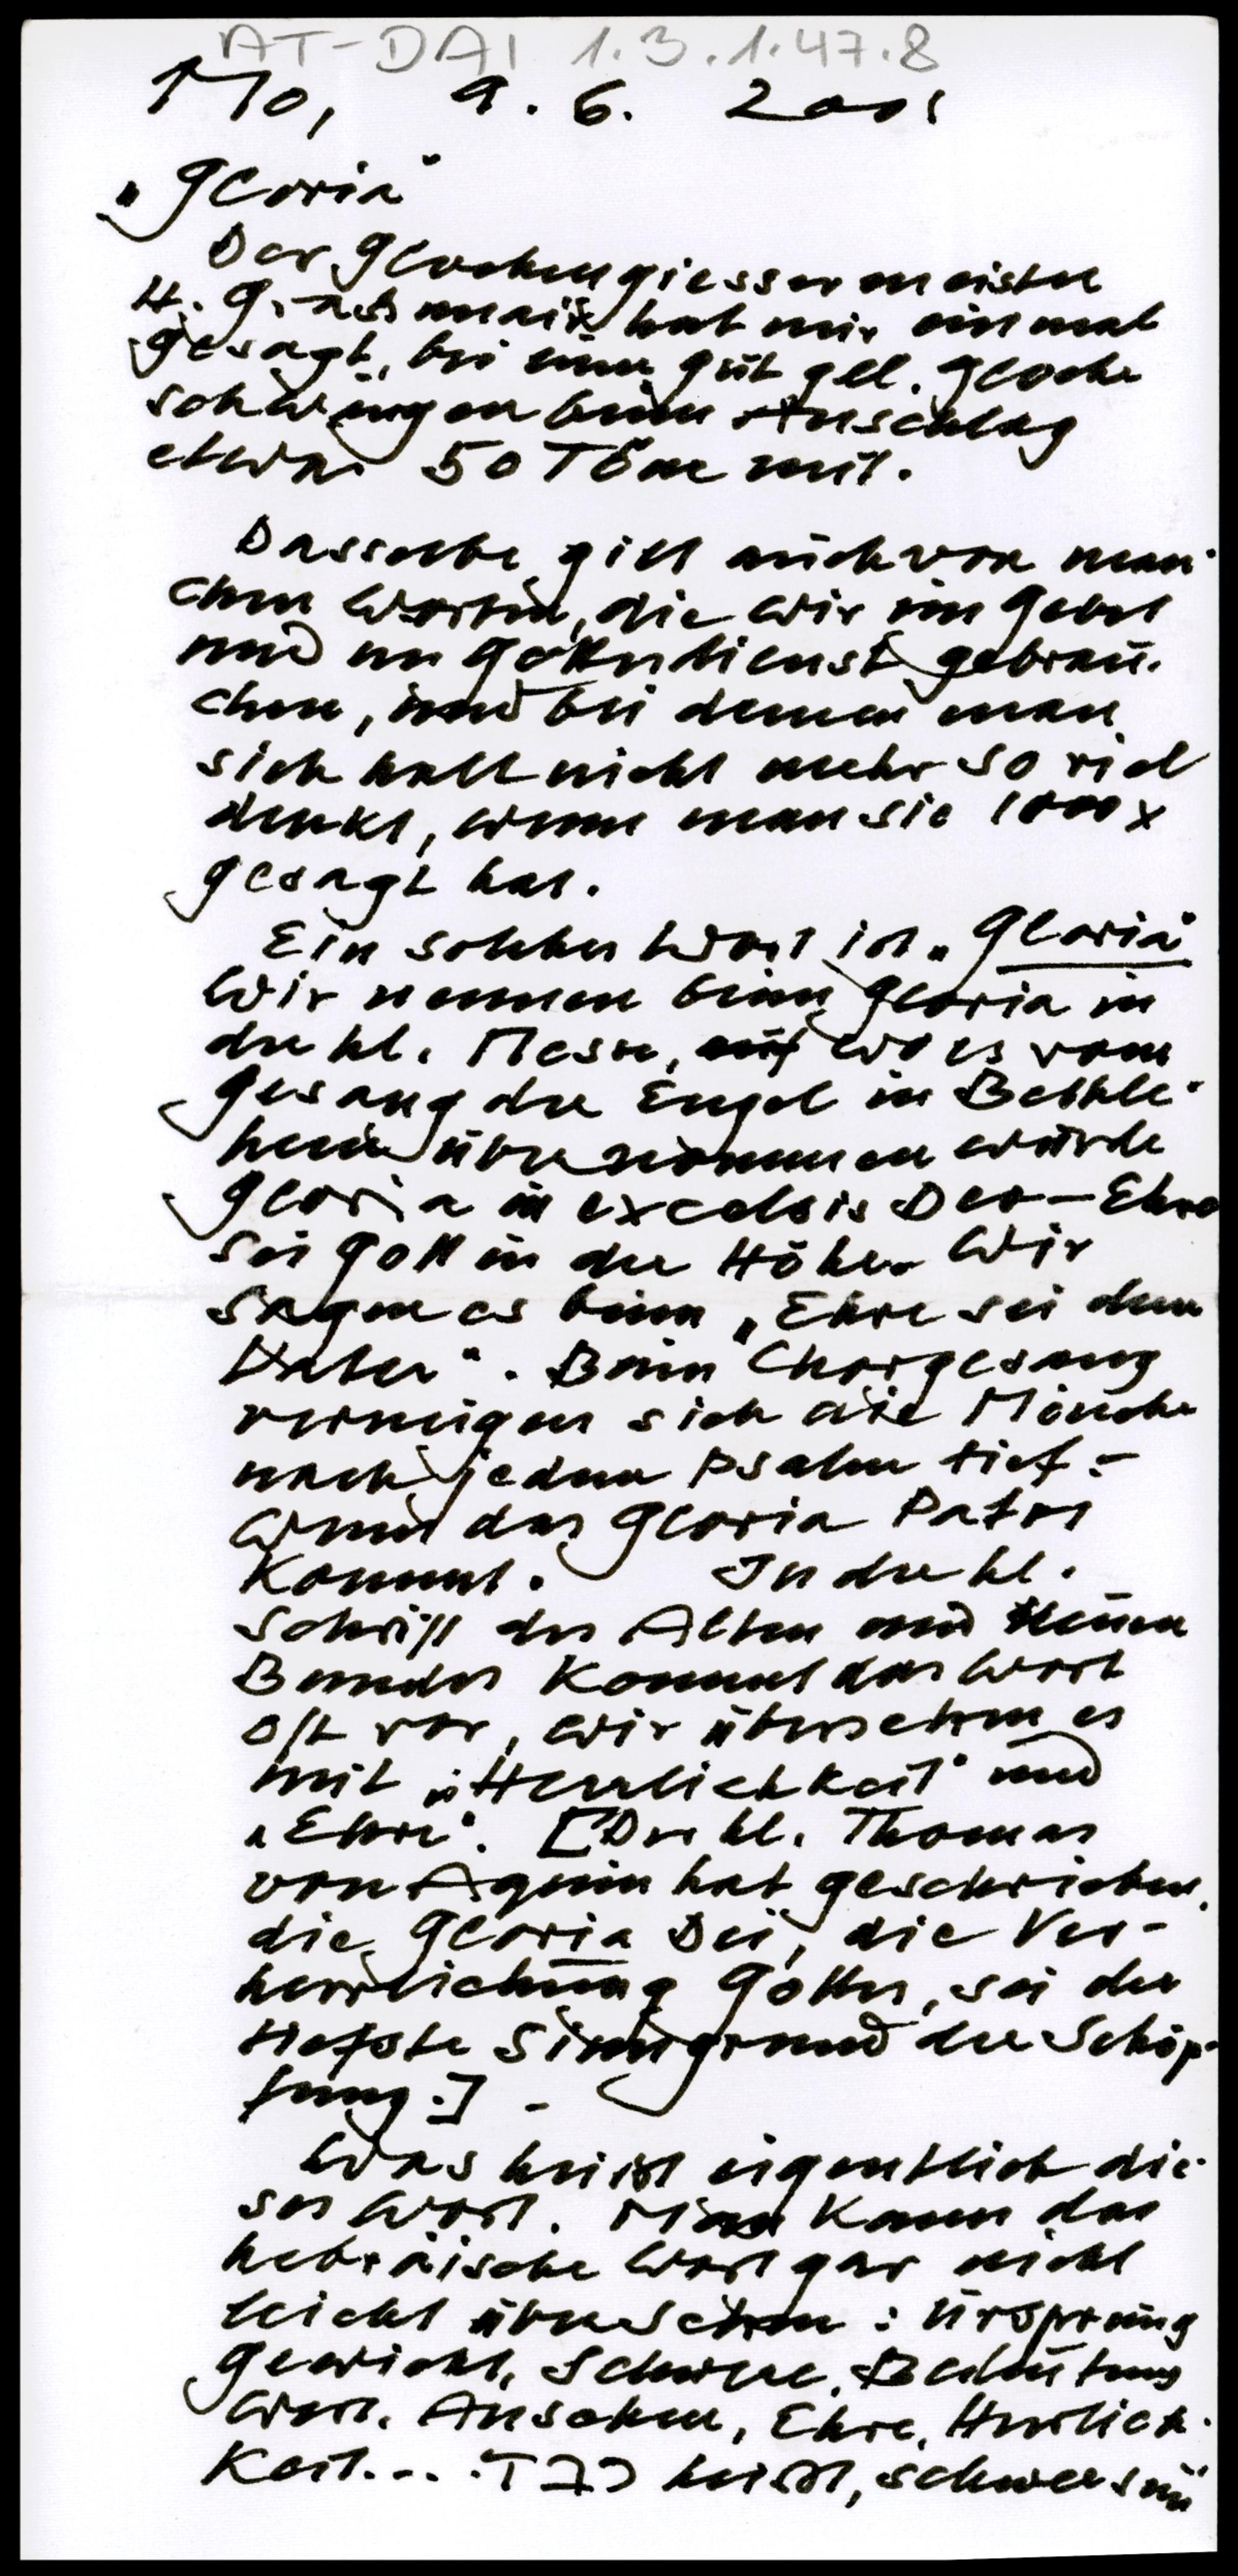 AT-DAI 1.3.1.47.8
Mo, 9. 6. 2001
„Gloria"
Der Glockengiessermeister
H. Grassmair hat mir einmal
gesagt, bei einer gut gel. Glocke
schwingen beim Anschlag
etwa 50 Töne mit.
Dasselbe gilt auch von man-
chen Worten, die wir im Gebet
und im Gottesdienst gebrau-
chen, und bei denen man
sich halt nicht mehr so viel
denkt, wenn man sie 1000x
gesagt hat.
Ein solches Wort ist „Gloria"
Wir nennen beim Gloria in
der hl. Messe, wo es vom
Gesang der Engel in Bethle-
hem übernommen wurde
Gloria in excelsis Deo – Ehre
sei Gott in der Höhe. Wir
sagen es beim „Ehre sei dem
Vater". Beim Chorgesang
verneigen sich die Mönche
nach jedem Psalm tief –
wenn das Gloria Patri
kommt. In der hl.
Schrift des Alten und Neuen
Bundes kommt das Wort
oft vor, wir übersetzen es
mit „Herrlichkeit" und
„Ehre". [Der hl. Thomas
von Aquin hat geschrieben,
die Gloria Dei, die Ver-
herrlichung Gottes, sei der
tiefste Sinngrund der Schöp-
fung.] -
Was heisst eigentlich die-
ses Wort. Man kann das
hebräische Wort gar nicht
leicht übersetzen: Ursprung
Gewicht, Schwere, Bedeutung
Wert, Ansehen, Ehre, Herrlich-
keit... heisst, schwer sein